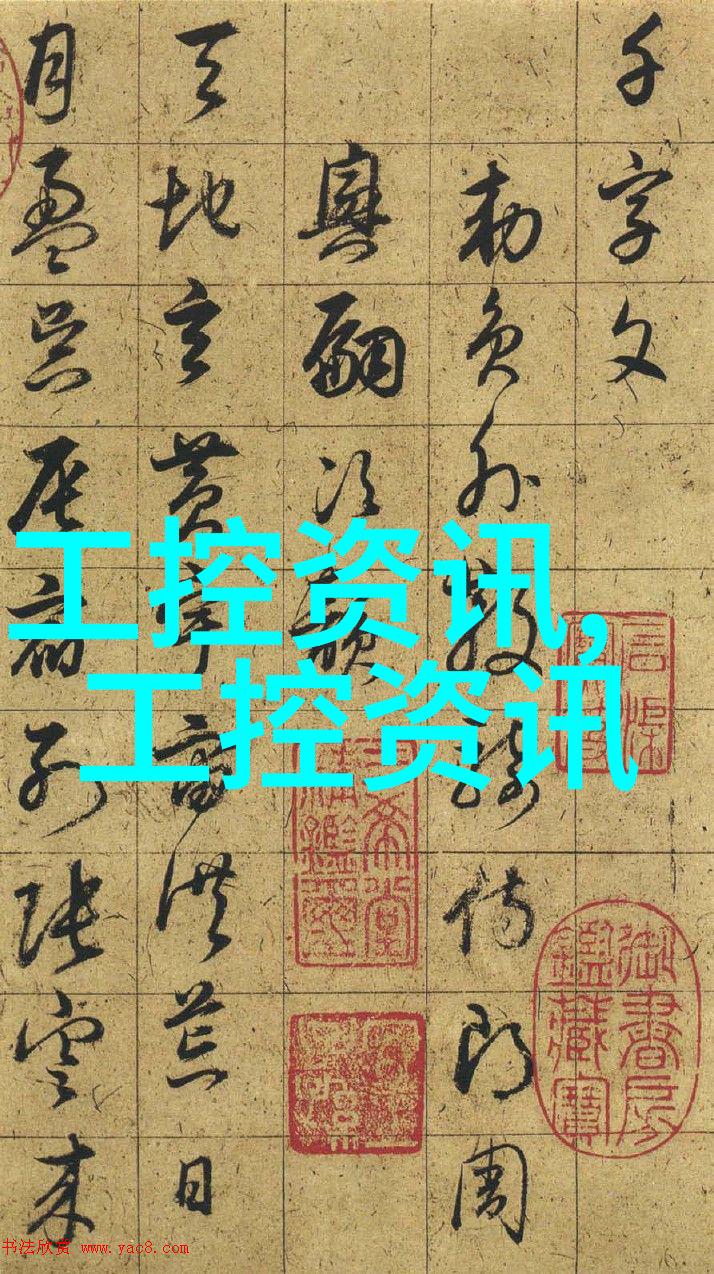 千字文
勅員外散騎侍郎周
興嗣次韻
天地玄黄宇宙洪荒日
月盈昃辰宿列張寒來
工控资讯,
工控资讯
三希堂
精鑑璽
御書房
鑑藏寶
书法欣赏 www.yac8.com